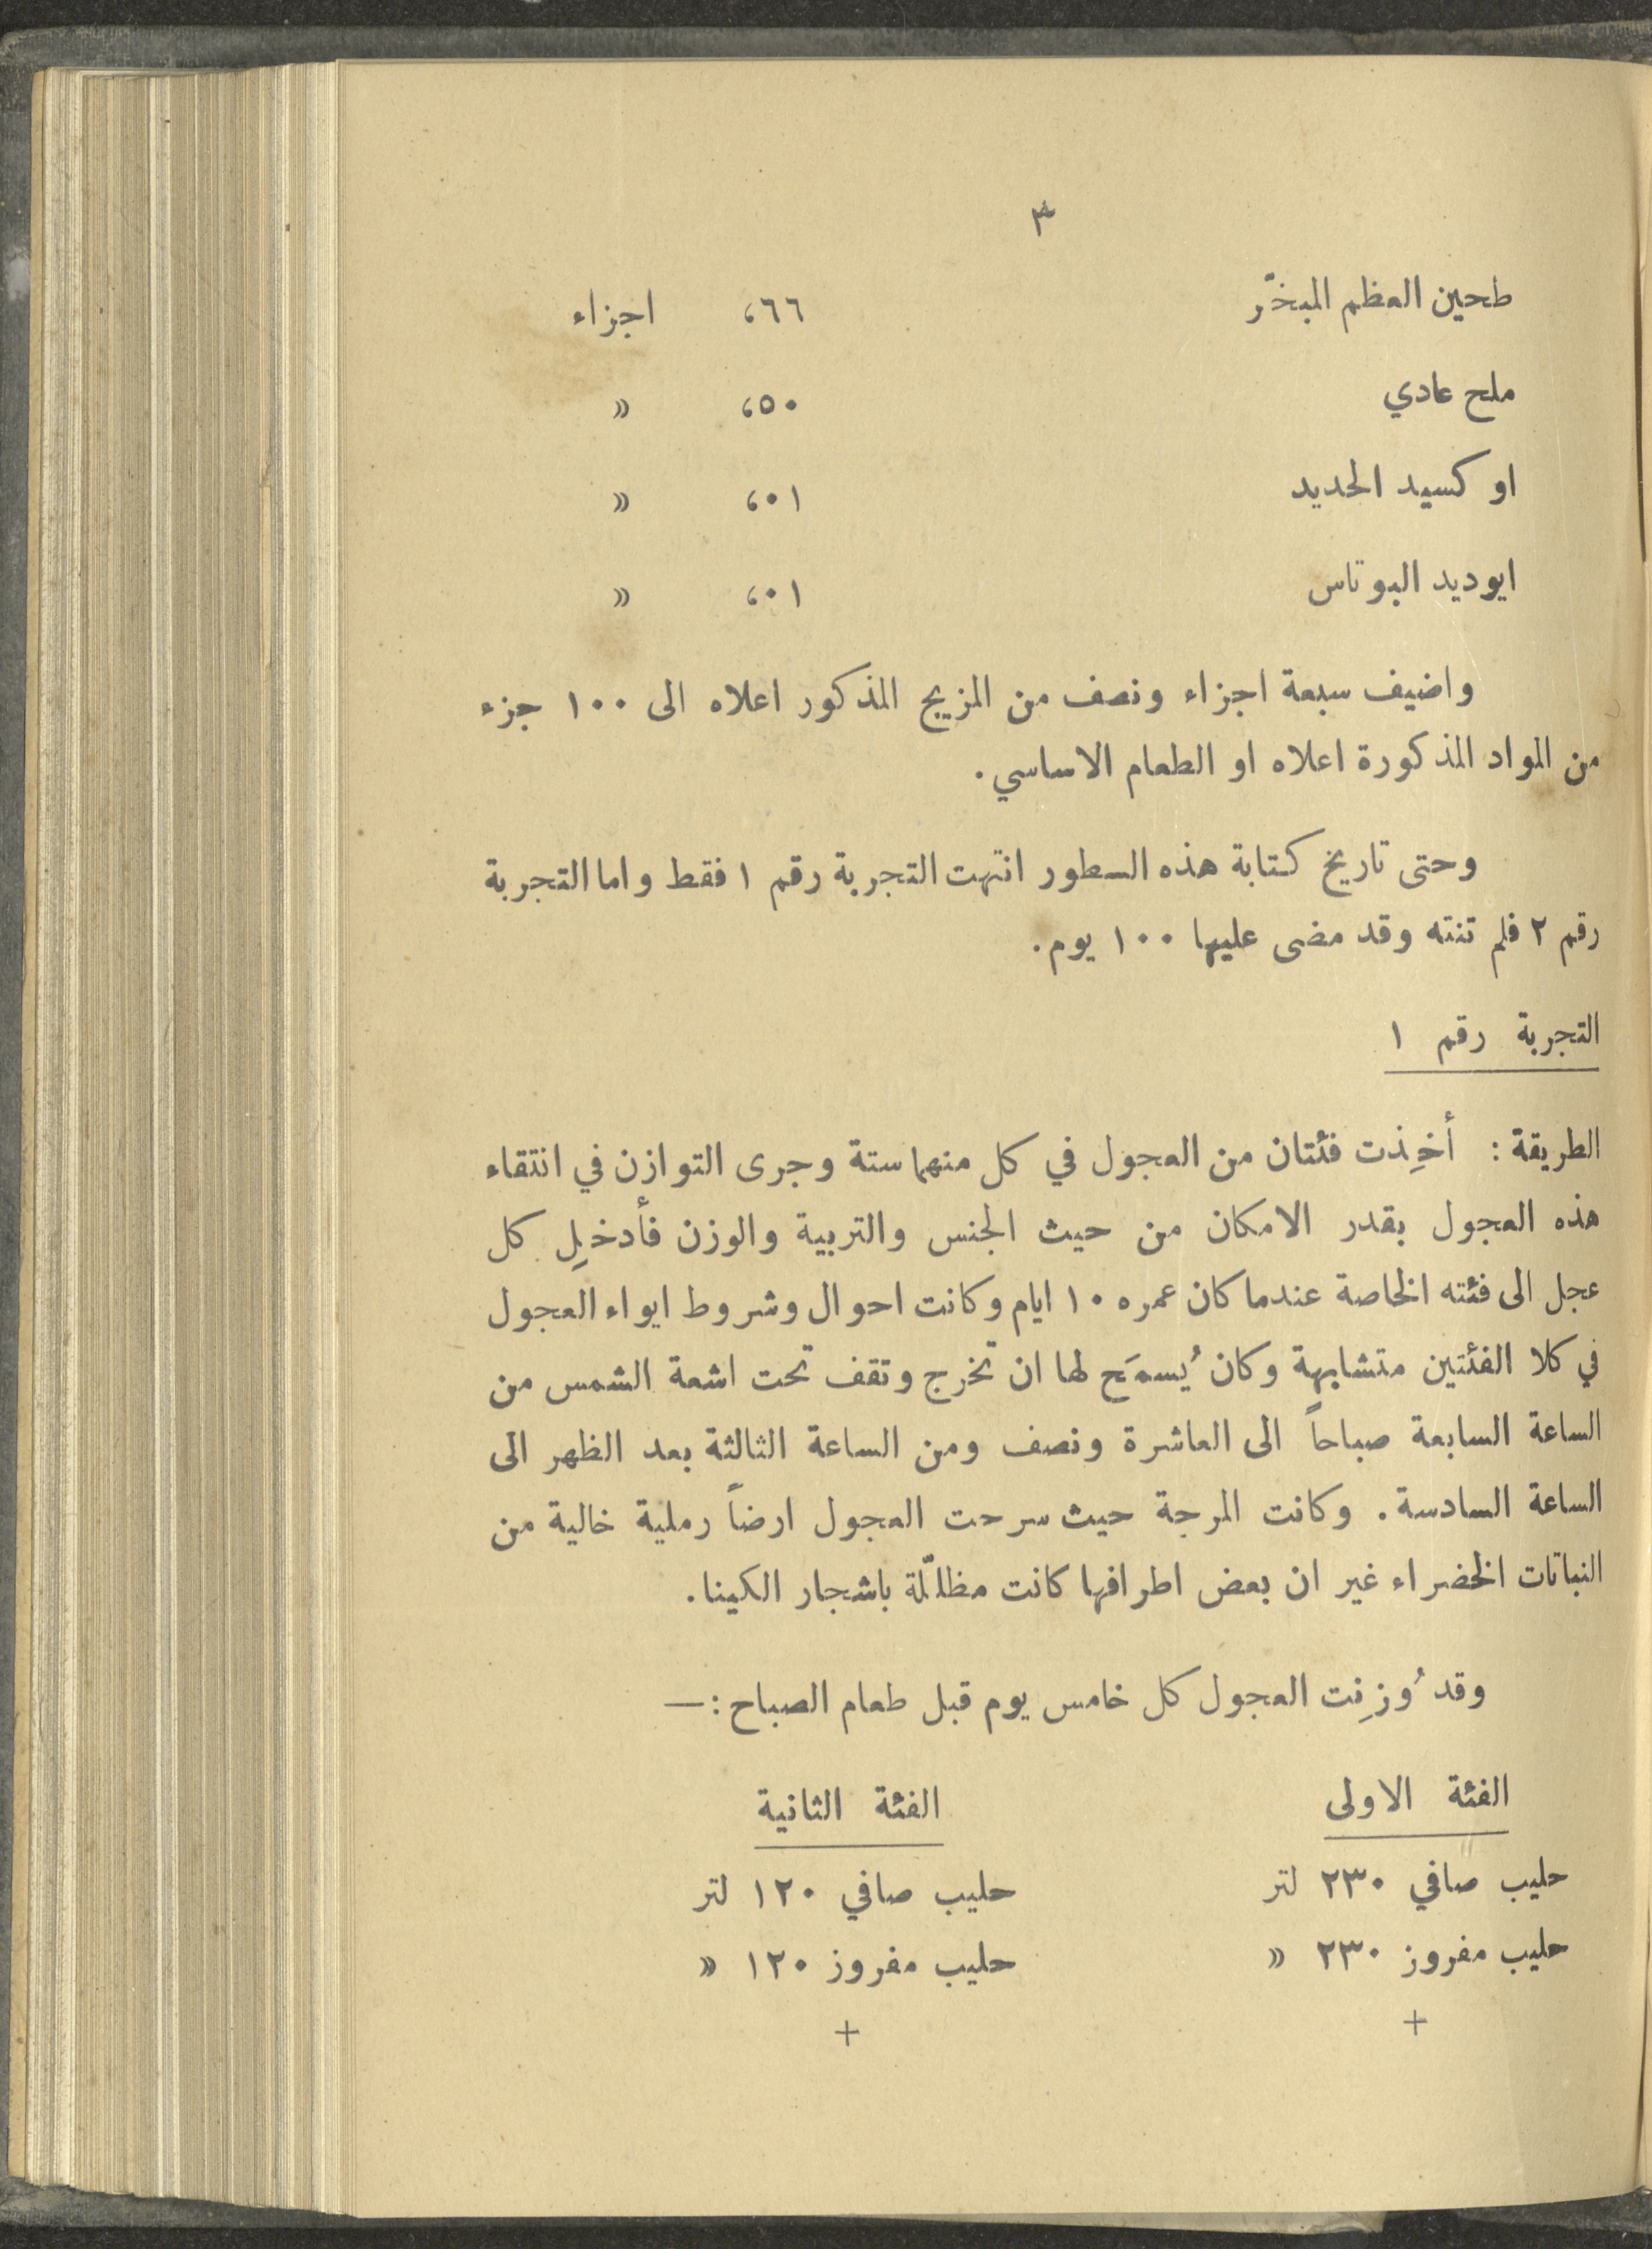 ٣
طحين العظم المبخّر ٦٦، اجزاء
ملح عادي ٥٠، »
اوكسيد الحديد ٠١، »
ايوديد البوتاس ٠١، »
واضيف سبعة اجزاء ونصف من المزيج المذكور اعلاه الى ١٠٠ جزء
من المواد المذكورة اعلاه او الطعام الاساسي.
وحتى تاريخ كتابة هذه السطور انتهت التجربة رقم ١ فقط واما التجربة
رقم ٢ فلم تنته وقد مضى عليها ١٠٠ يوم.
التجربة رقم ١
الطريقة: أخِذت فئتان من العجول في كل منهما ستة وجرى التوازن في انتقاء
هذه العجول بقدر الامكان من حيث الجنس والتربية والوزن فأدخِل كل
عجل الى فئته الخاصة عندما كان عمره ١٠ ايام وكانت احوال وشروط ايواء العجول
في كلا الفئتين متشابهة وكان يُسمَح لها ان تخرج وتقف تحت اشعة الشمس من
الساعة السابعة صباحاً الى العاشرة ونصف ومن الساعة الثالثة بعد الظهر الى
الساعة السادسة. وكانت المرجة حيث سرحت العجول ارضاً رملية خالية من
النباتات الخضراء غير ان بعض اطرافها كانت مظللّة باشجار الكينا.
وقد وُزِنت العجول كل خامس يوم قبل طعام الصباح:—
الفئة الاولى الفئة الثانية
حليب صافي ٢٣٠ لتر حليب صافي ١٢٠ لتر
حليب مفروز ٢٣٠ » حليب مفروز ١٢٠ »
+ +